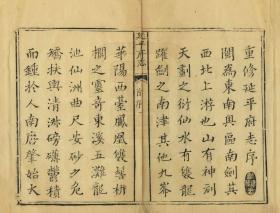 重修延平府志序
閩為東南奧區南劍其
西北上游也山有神刻
天劃之衍仙水有雙龍
躍劍之南津其他九峯
延平府志
首序
華陽西臺鳳凰雙髻栟
櫚之靈奇東溪五灘龍
池仙洲曲尺安砂之
矯扶輿清淑磅礴鬱積
而鍾於人南唐肇始大